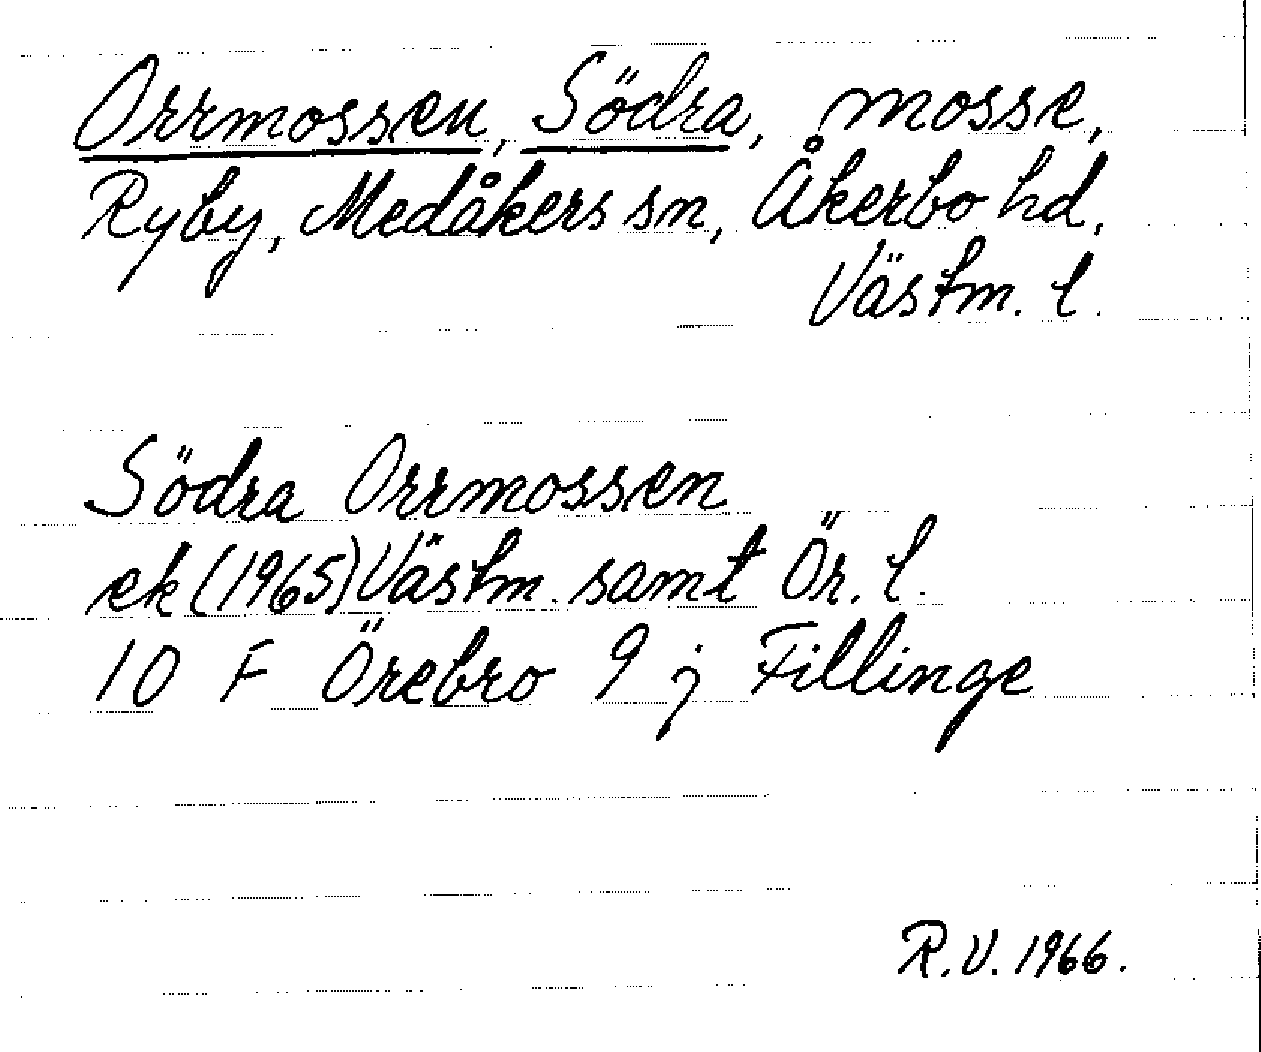 Orrmossen, Södra, mosse,
Ryby, Medåkers sn, Åkerbo hd,
Västm. l.
Södra Orrmossen
ek (1965) Västm. samt Ör. l.
10 F Örebro 9 j Fillinge
R.V. 1966.